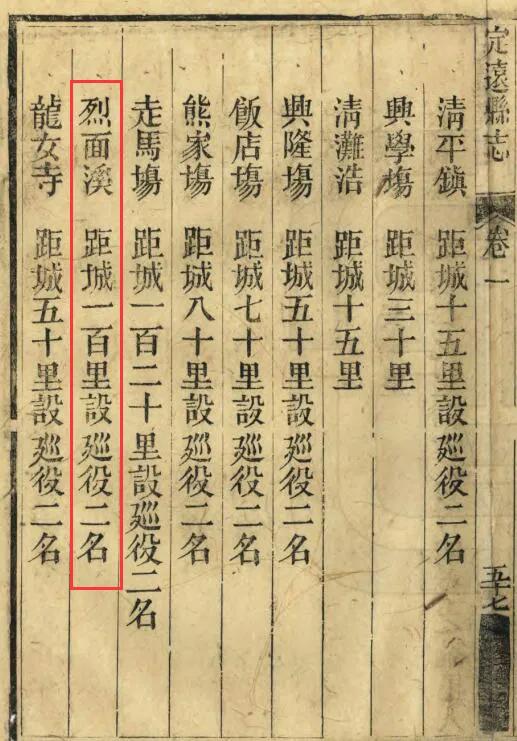 定遠縣志
卷一
五十七
清平鎮 距城十五里設廵役二名
興學塲 距城三十里
清灘浩 距城十五里
興隆塲 距城五十里設廵役二名
飯店塲 距城七十里設廵役二名
熊家塲 距城八十里設廵役二名
走馬塲 距城一百二十里設廵役二名
烈面溪 距城一百里設廵役二名
龍女寺 距城五十里設廵役二名